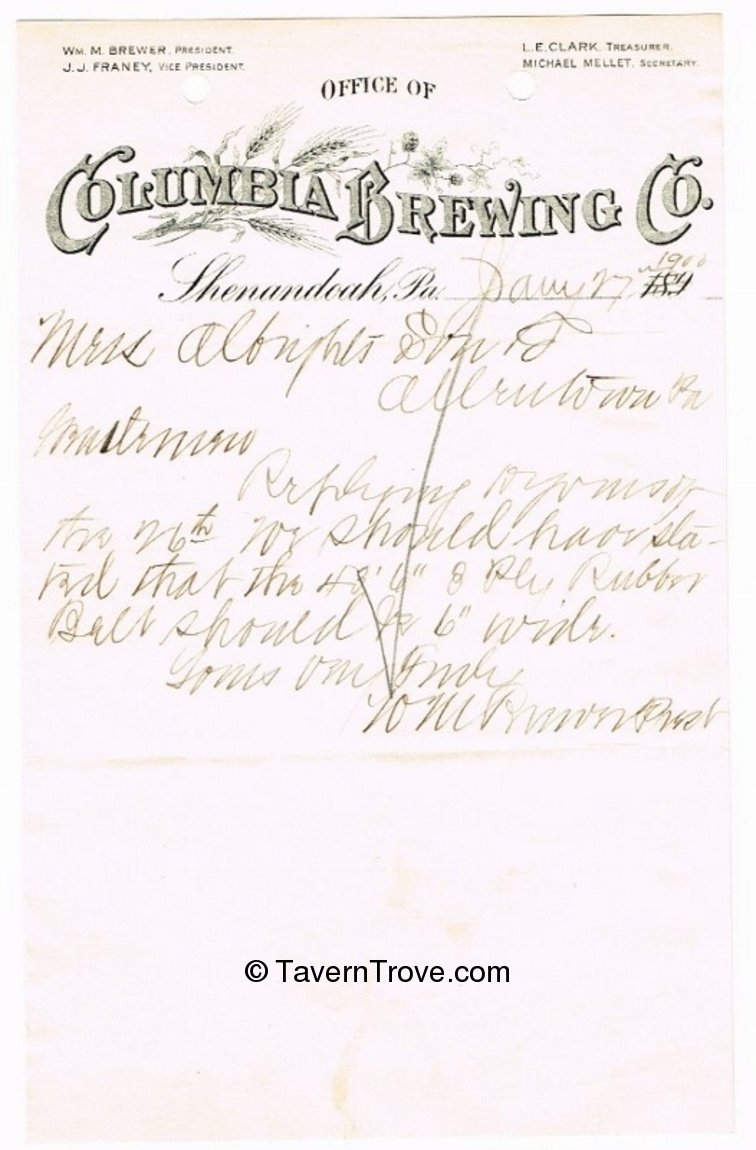 WM. M. BREWER, PRESIDENT.
J. J. FRANEY, VICE PRESIDENT.
L. E. CLARK, TREASURER.
MICHAEL MELLET, SECRETARY.
OFFICE OF
COLUMBIA BREWING CO.
Shenandoah, Pa. Jany 27 1900 189
Mess Albrights Son &
Allentown Pa
Gentlemen
Replying to yours of
the 26th we should have sta-
ted that the 48' 6" 3 Ply Rubber
Belt should be 6" wide.
Yours Very Truly
W M Brewer Prest
© TavernTrove.com